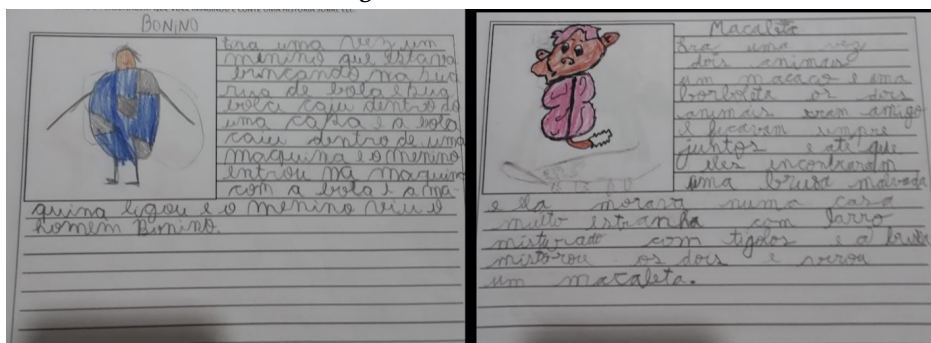 QUE VOCÊ IMAGINOU E CONTE UMA HISTÓRIA SOBRE ELE.
BONINO
Era uma vez um
menino que estava
brincando na sua
rua de bola e sua
bola caiu dentro de
uma casa e a bola
caiu dentro de uma
maquina e o menino
entrou na maquina
com a bola e a ma-
quina ligou e o menino viu o
homem Bonino.
Macaleta
Era uma vez
dois animais
um macaco e uma
borboleta os dois
animais eram amigo
e ficavam sempre
juntos e até que
eles encontraram
uma bruxa malvada
e ela morava numa casa
muito estranha com barro
misturado com tijolos e a bruxa
misturou os dois e virou
um macaleta.